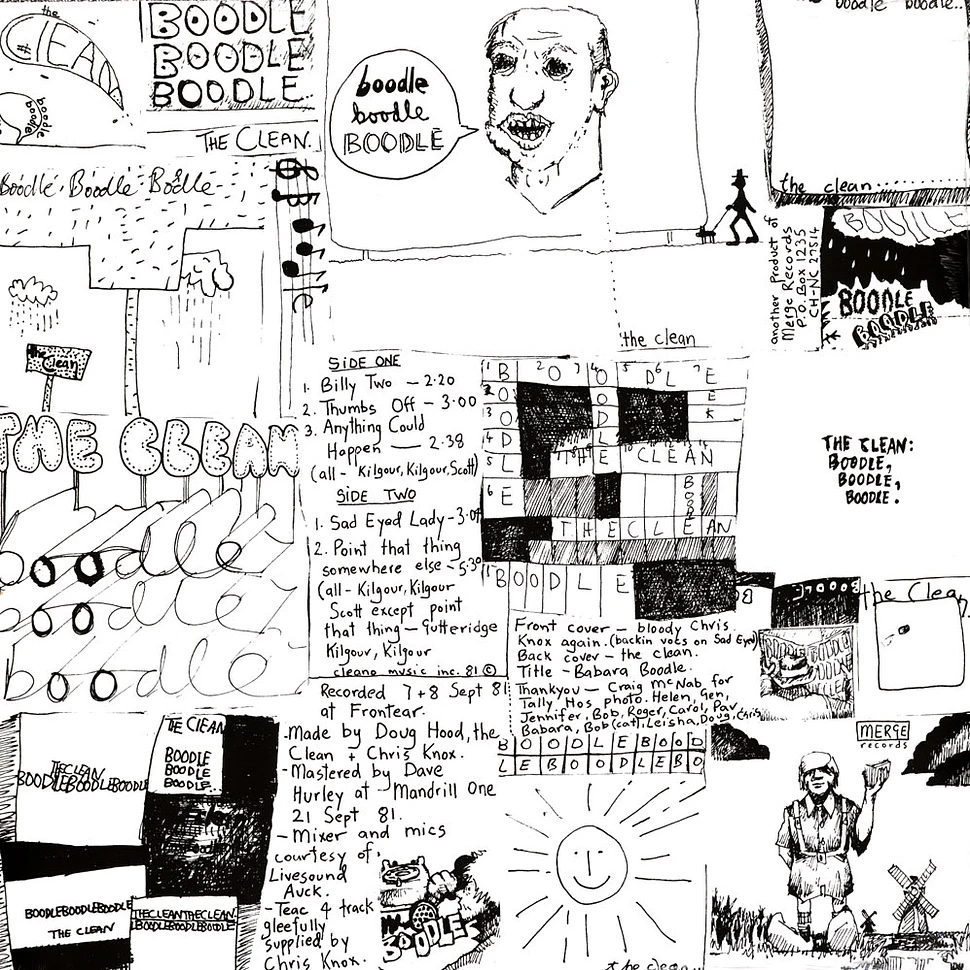 the
CLEAN
boodle
boodle
BOODLE
BOODLE
BOODLE
THE CLEAN.
Boodle. Boodle. Bodle
the Clean
THE CLEAN
boodle
boodle
boodle
boodle
boodle
BOODLE
the clean
boodle boodle..
the clean
another product of
Merge Records
P.O. Box 1235
CH-NC 27514
BOODLE
BOODLE
SIDE ONE
1. Billy Two — 2.20
2. Thumbs Off — 3.00
3. Anything Could
Happen — 2.38
(all - Kilgour, Kilgour, Scott)
SIDE TWO
1. Sad Eyed Lady - 3.04
2. Point that thing
somewhere else - 5.30
(all - Kilgour, Kilgour
Scott except point
that thing — Gutteridge
Kilgour, Kilgour
cleano music inc. 81 ©
Recorded 7+8 Sept 81
at Frontear.
-Made by Doug Hood, the
Clean + Chris Knox.
-Mastered by Dave
Hurley at Mandrill One
21 Sept 81.
-Mixer and mics
courtesy of
Livesound
Auck.
-Teac 4 track
gleefully
supplied by
Chris Knox.
BOODLE
THE CLEAN
THE CLEAN
BOODLE
Front cover — bloody Chris
Knox again. (backin voces on Sad Eyed)
Back cover — the clean.
Title — Babara Boodle.
Thankyou — Craig McNab for
Tally Hos photo. Helen, Gen,
Jennifer, Bob, Roger, Carol, Pav
Babara, Bob (cat), Leisha, Doug, Chris
BOODLEBOOD
LEBOODLEBO
THE CLEAN:
BOODLE,
BOODLE,
BOODLE.
the Clean
MERGE
records
THE CLEAN
BOODLEBOODLEBOODLE
THE CLEAN
BOODLE
BOODLE
BOODLE..
BOODLEBOODLEBOODLE
THE CLEAN
THECLEANTHECLEAN
BOODLEBOODLEBOODLE
BOODLE
the clean...